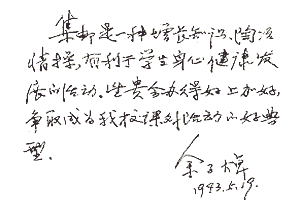 集邮是一种增长知识、陶冶
情操、有利于学生身心健康发
展的活动。望贵会办得好上加好,
争取成为我校课外活动的好典
型。
余子樟
1993.5.19.